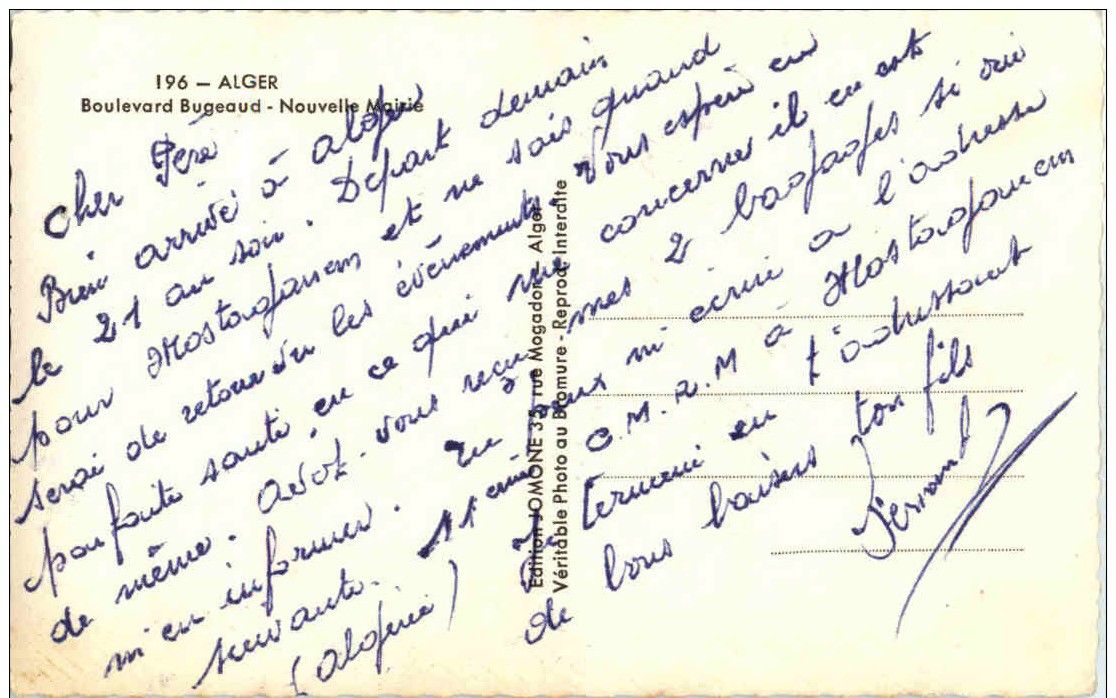 196 – ALGER
Boulevard Bugeaud - Nouvelle Mairie
Edition JOMONE 35, rue Mogador - Alger
Véritable Photo au Bromure - Reprod. Interdite
Cher Père
Bien arrivé à alger
le 21 au soir. Départ demain
pour Mostaganem et ne sais quand
serai de retour vu les événements. Vous espère en
parfaite santé, en ce qui me concerne il en est
de même. avez-vous reçu mes 2 bagages si oui
m'en informer. Tu peux m'écrire a l'adresse
suivante. 11eme C.M.R.M à Mostaganem
(algérie) Je termine en t'adressant
de bons baisers ton fils
Fernand